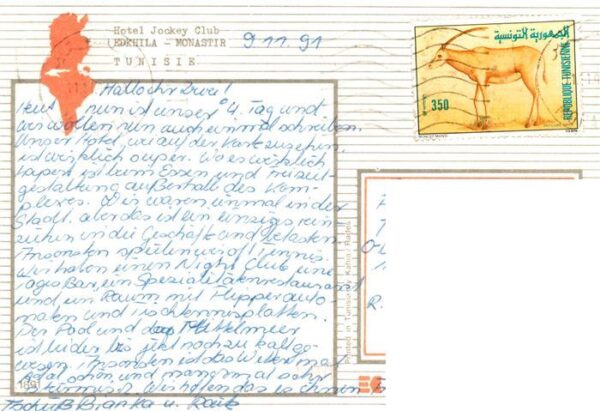 Hotel Jockey Club
EDKHILA - MONASTIR
TUNISIE
9.11.91
350
REPUBLIQUE TUNISIENNE
الجمهورية التونسية
Hallochr zwei!
Heut nun ist unser 4. Tag und
wir wollen nun auch einmal schreiben.
Unser Hotel, wie auf der Karte zu sehen,
ist wirklich super. Wo es wirklich
hapert ist beim Essen und Freizeit-
gestaltung außerhalb des Kom-
plexes. Wir waren einmal in der
Stadt, aber das ist ein einziges rein
ziehen in die Geschäfte und
Ansonsten spielen wir oft Tennis.
Wir haben einen Night Club, eine
Tagesbar, ein Spezialitätenrestaurant
und ein Raum mit Flipperauto-
maten und Tischtennisplatten.
Der Pool und das Mittelmeer
ist leider bis jetzt noch zu kalt ge-
wesen. Ansonsten ist das Wetter mal
schön und manchmal sehr
stürmisch. Wir
Tschüß Bianka u.
1891
R.